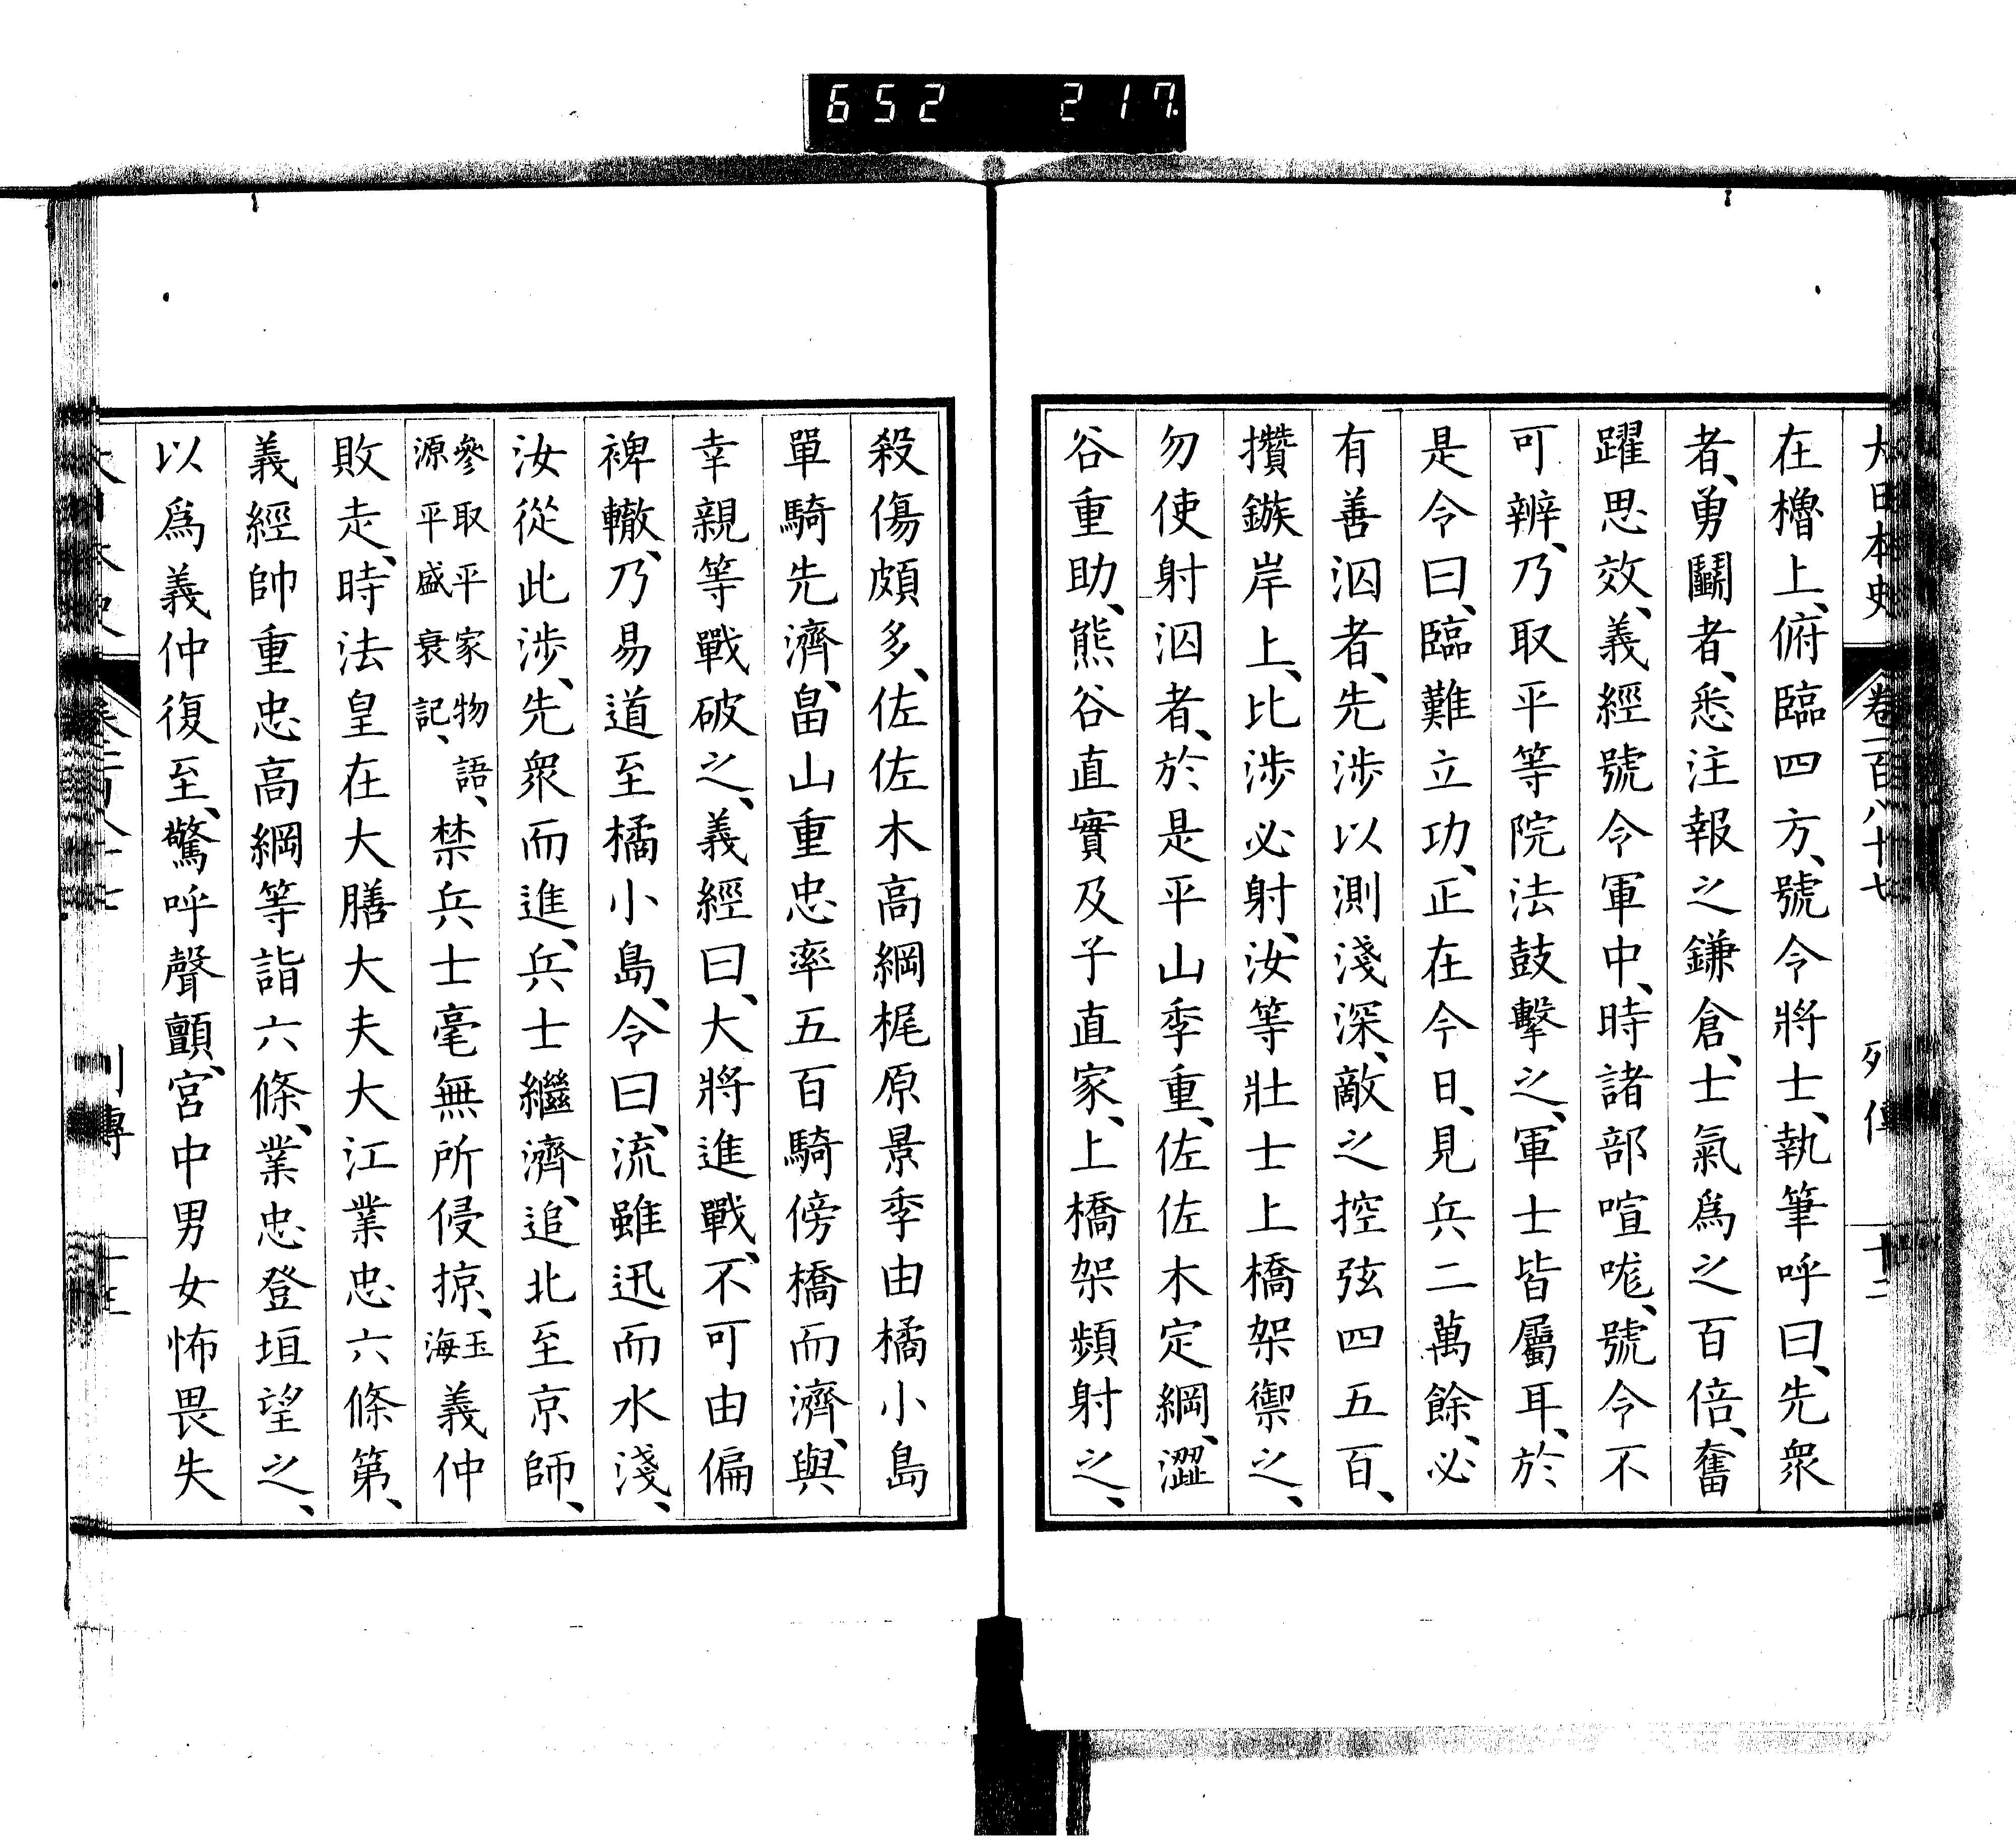 652 217.
大日本史 卷一百八十七 列傳 十二
在櫓上、俯臨四方、號令將士、執筆呼曰、先衆
者、勇鬭者、悉注報之鎌倉、士氣爲之百倍、奮
躍思效、義經號令軍中、時諸部喧咙、號令不
可辨、乃取平等院法鼓擊之、軍士皆屬耳、於
是令曰、臨難立功、正在今日、見兵二萬餘、必
有善泅者、先涉以測淺深、敵之控弦四五百、
攢鏃岸上、比涉必射、汝等壯士上橋架禦之、
勿使射泅者、於是平山季重、佐佐木定綱、澀
谷重助、熊谷直實及子直家、上橋架頻射之、
殺傷頗多、佐佐木高綱梶原景季由橘小島
單騎先濟、畠山重忠率五百騎傍橋而濟、與
幸親等戰破之、義經曰、大將進戰、不可由偏
裨轍、乃易道至橘小島、令曰、流雖迅而水淺、
汝從此涉、先衆而進、兵士繼濟、追北至京師、
參取平家物語、源平盛衰記、禁兵士毫無所侵掠、玉海義仲
敗走、時法皇在大膳大夫大江業忠六條第、
義經帥重忠高綱等詣六條、業忠登垣望之、
以爲義仲復至、驚呼聲顫、宮中男女怖畏失